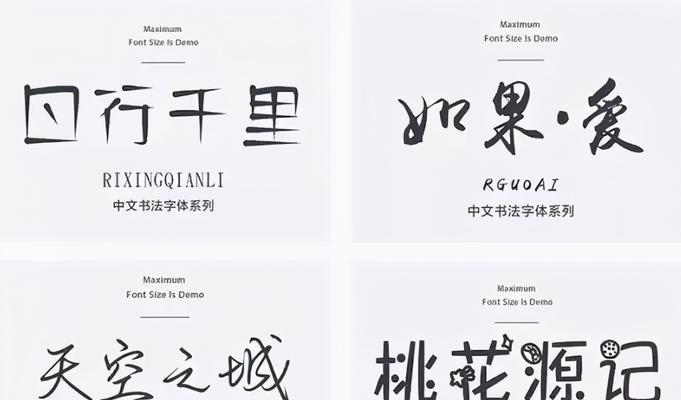 Maximum
Font Size Is Demo
日行千里
RIXINGQIANLI
中文书法字体系列
Maximum
Font Size Is Demo
如果·爱
RGUOAI
中文书法字体系列
Maximum
Font Size Is Demo
天空之城
Maximum
Font Size Is Demo
桃花源记